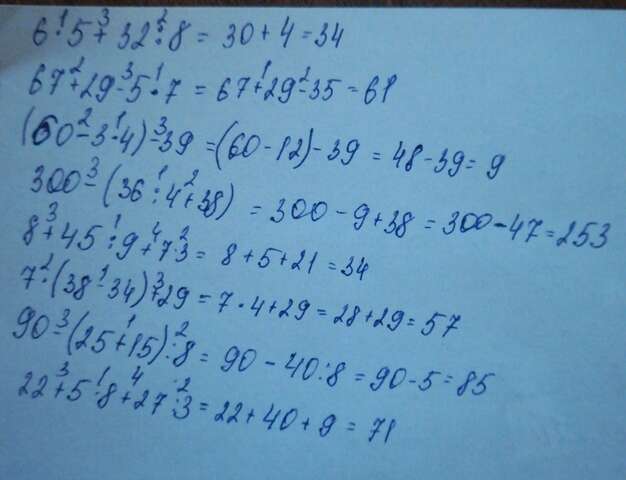 6·5+32:8 = 30+4=34
67+29-5·7 = 67+29-35=61
(60-3·4)-39 =(60-12)-39 = 48-39=9
300-(36:4+38) = 300-9+38 = 300-47=253
8+45:9+7·3= 8+5+21=34
7·(38-34)+29=7·4+29=28+29=57
90-(25+15):8= 90-40:8=90-5=85
22+5·8+27:3=22+40+9=71